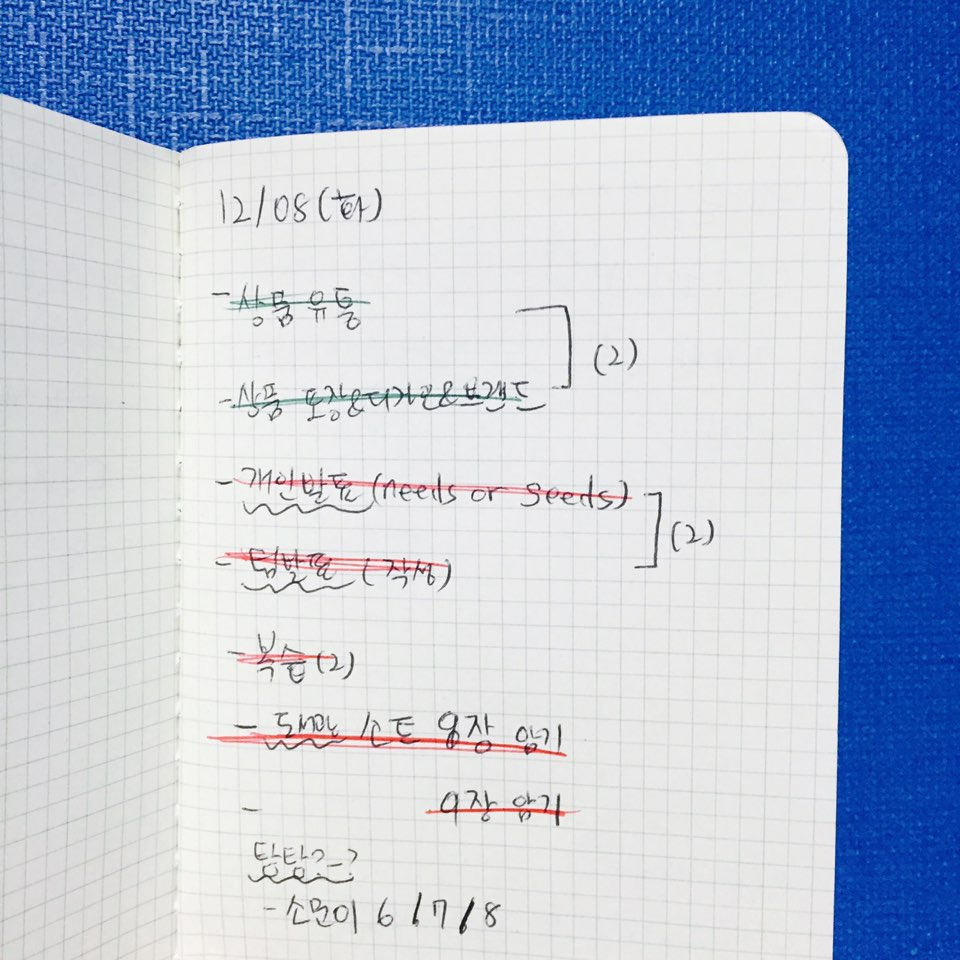 12/08(화)
- 상품유통
(2)
- 상품 포장&디자인&브랜드
- 개인발표(needs or seeds)
(2)
- 팀발표 (작성)
- 복습(2)
- 노트 8장 암기
- 9장 암기
- 소문이 6/7/8